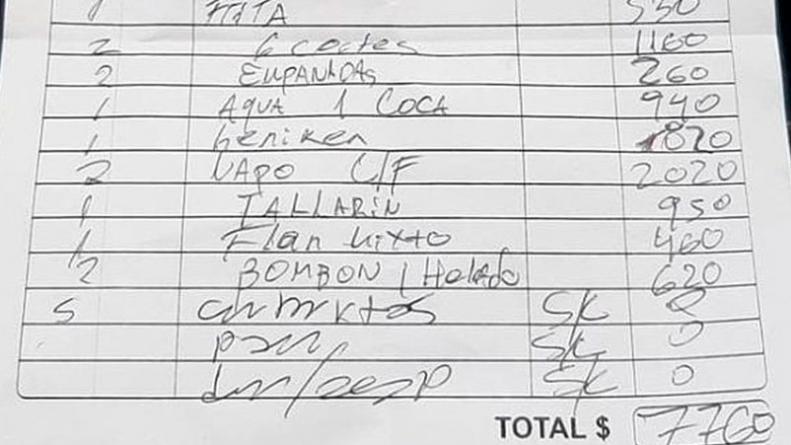 1 FAITA 530
2 6 cortes 1160
2 EMPANADAS 260
1 AGUA 1 COCA 940
1 heniken 820
2 VAPO C/F 2020
1 TALLARIN 950
1 Flan Mixto 460
2 BOMBON 1 Helado 620
5 cubiertos S/C 0
pan S/C 0
S/C 0
TOTAL $ 7760